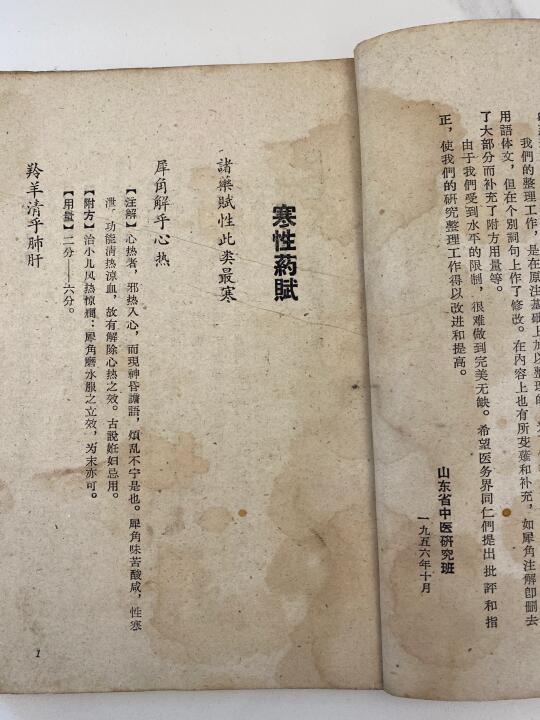 我們的整理工作，是在原注基础上加以整理的
用語体文，但在个別詞句上作了修改。在內容上也有所芟薙和补充，如犀角注解卽刪去
了大部分而补充了附方用量等。
由于我們受到水平的限制，很难做到完美无缺。希望医务界同仁們提出批評和指
正，使我們的研究整理工作得以改进和提高。
山东省中医研究班
一九五六年十月
寒性葯賦
諸藥賦性此类最寒
犀角解乎心热
【注解】心热者，邪热入心，而現神昏譫語，煩乱不宁是也。犀角味苦酸咸，性寒
泄，功能清热涼血，故有解除心热之效。古說姙妇忌用。
【附方】治小儿风热惊癇：犀角磨水服之立效，为末亦可。
【用量】二分——六分。
羚羊清乎肺肝
1